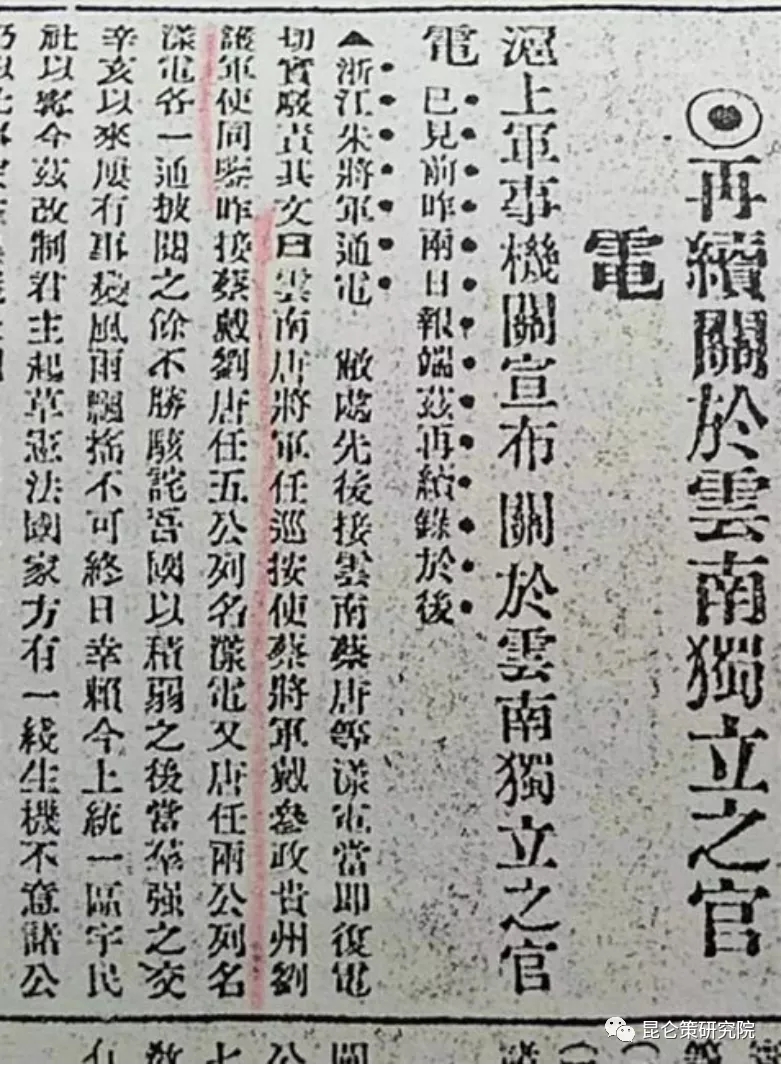 再續關於雲南獨立之官
電
滬上軍事機關宣布關於雲南獨立之官
電 已見前昨兩日報端茲再續錄於後
▲浙江朱將軍通電 敝處先後接雲南蔡唐等漾電當即復電
切實駁責其文曰雲南唐將軍任巡按使蔡將軍戴參政貴州劉
護軍使同鑒昨接蔡戴劉唐任五公列名漾電又唐任兩公列名
漾電各一通披閱之餘不勝駭詫吾國以積弱之後當羣强之交
辛亥以來屢有事變風雨飄搖不可終日幸賴今上統一區宇民
社以寗今茲改制君主起草憲法國家方有一綫生機不意諸公
昆仑策研究院